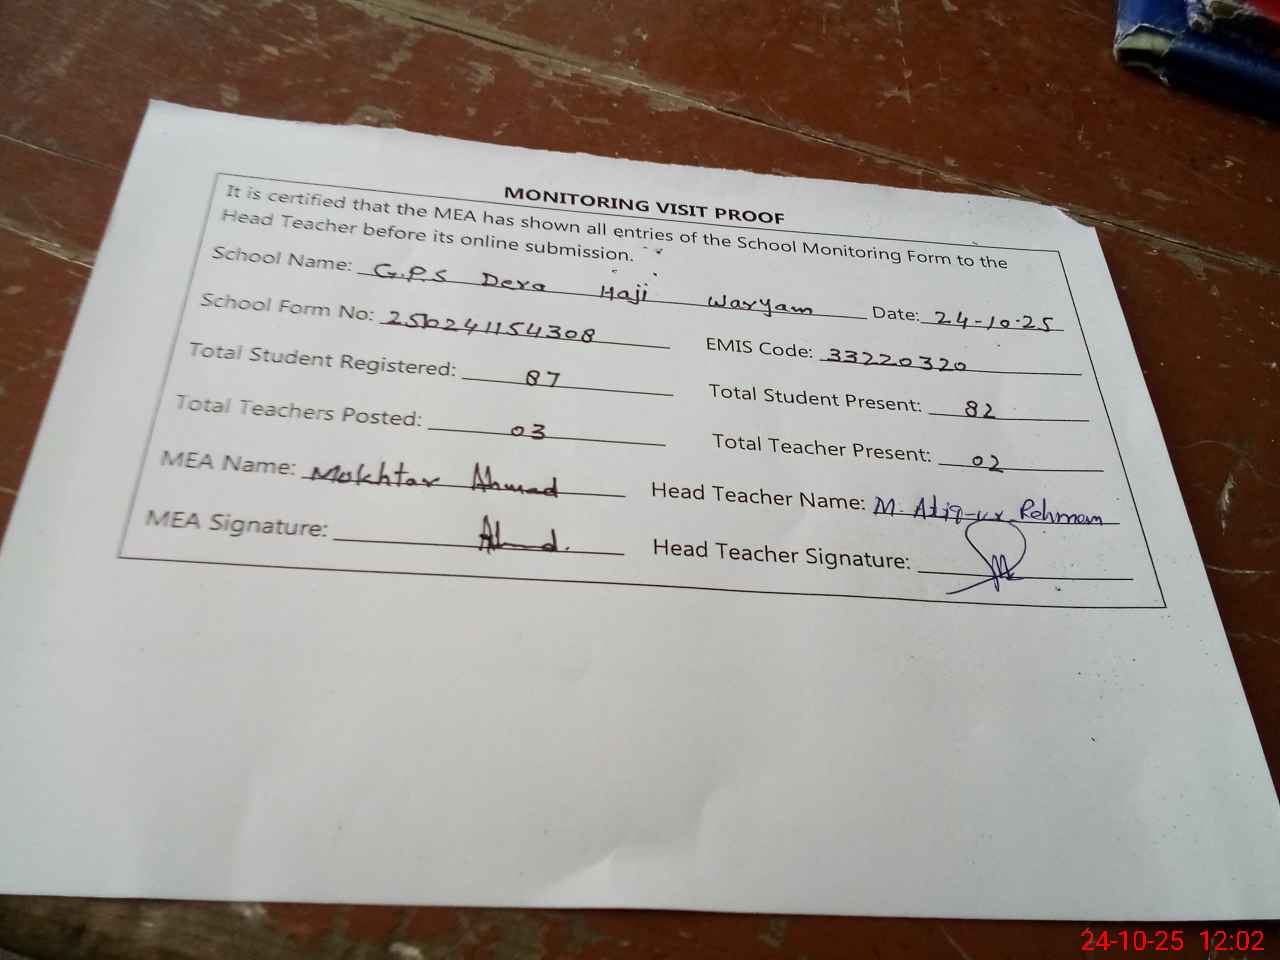 MONITORING VISIT PROOF
It is certified that the MEA has shown all entries of the School Monitoring Form to the
Head Teacher before its online submission.
School Name: G.P.S Dera Haji Waryam Date: 24-10-25
School Form No: 2510241154308 EMIS Code: 33220320
Total Student Registered: 87 Total Student Present: 82
Total Teachers Posted: 03 Total Teacher Present: 02
MEA Name: Mukhtar Ahmad Head Teacher Name: M. Atiq-ur-Rehman
MEA Signature: Ahmad. Head Teacher Signature:
24-10-25 12:02